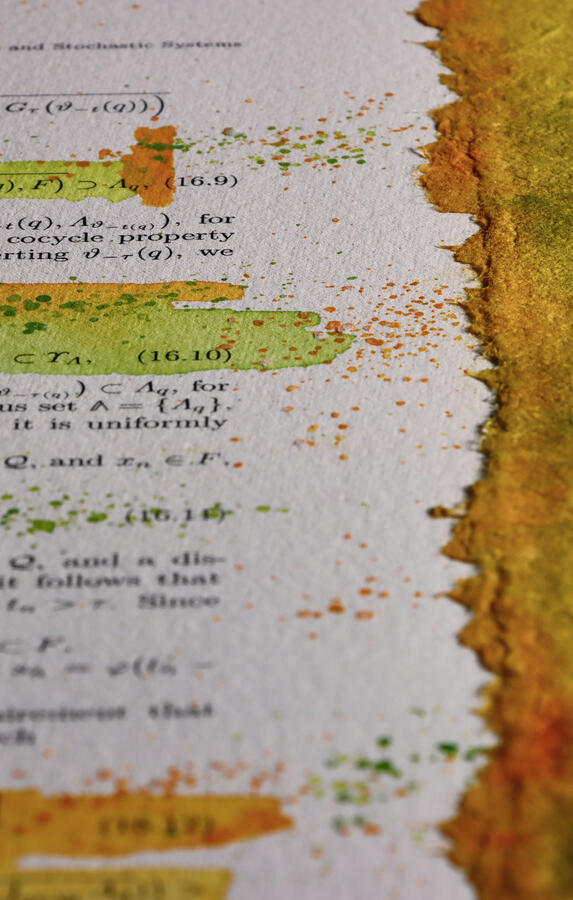 and Stochastic Systems
G_τ(ϑ_{−t}(q)))
), F) ⊃ Λ_q, (16.9)
(q), Λ_{ϑ_{−t}(q)}), for
cocycle property
erting ϑ_{−τ}(q), we
⊂ Υ_Λ, (16.10)
ϑ_{−τ}(q)) ⊂ Λ_q, for
us set 𝔸 = {Λ_q}.
it is uniformly
Q, and x_n ∈ F,
(16.11)
Q, and a dis-
it follows that
t_n > τ. Since
⊂ F.
= φ(t_n −
uirement that
(16.12)